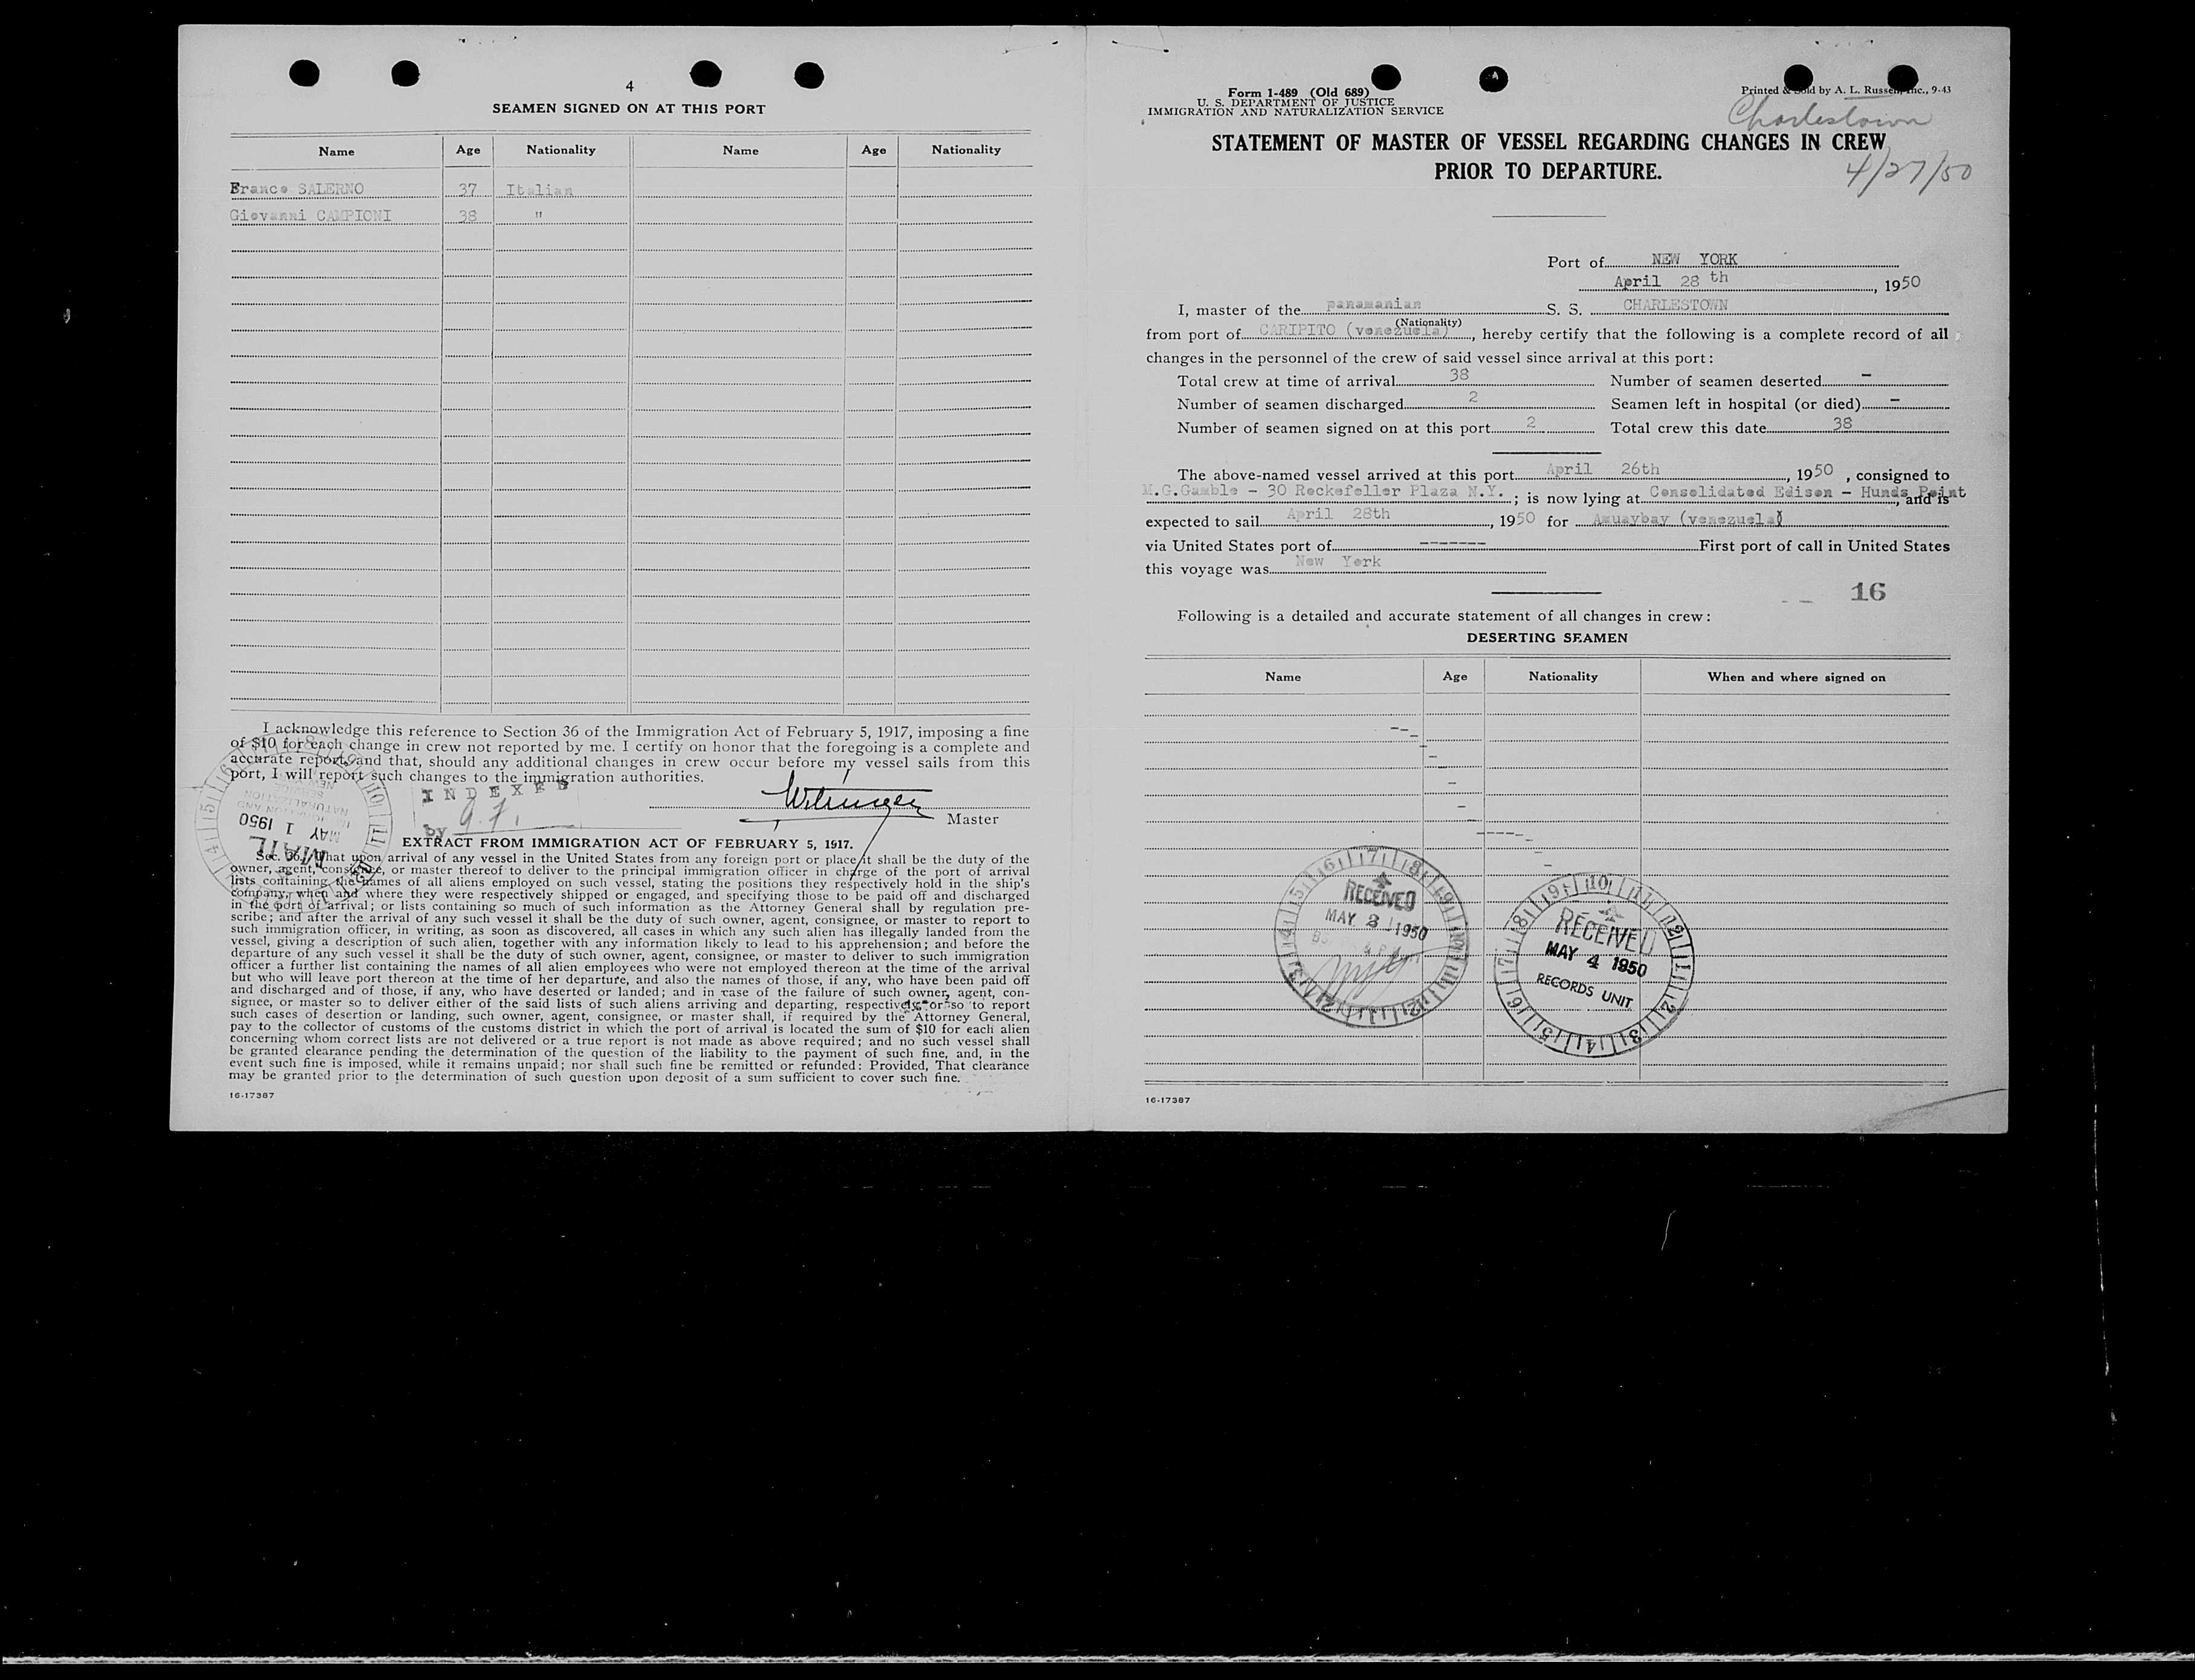 4
SEAMEN SIGNED ON AT THIS PORT
Name Age Nationality Name Age Nationality
Franco SALERNO 37 Italian
Giovanni CAMPIONI 38 "
I acknowledge this reference to Section 36 of the Immigration Act of February 5, 1917, imposing a fine
of $10 for each change in crew not reported by me. I certify on honor that the foregoing is a complete and
accurate report, and that, should any additional changes in crew occur before my vessel sails from this
port, I will report such changes to the immigration authorities.
INDEXED
by g.f.
Master
MAY 1 1950
MAIL
EXTRACT FROM IMMIGRATION ACT OF FEBRUARY 5, 1917.
Sec. 36. That upon arrival of any vessel in the United States from any foreign port or place it shall be the duty of the
owner, agent, consignee, or master thereof to deliver to the principal immigration officer in charge of the port of arrival
lists containing the names of all aliens employed on such vessel, stating the positions they respectively hold in the ship's
company, when and where they were respectively shipped or engaged, and specifying those to be paid off and discharged
in the port of arrival; or lists containing so much of such information as the Attorney General shall by regulation pre-
scribe; and after the arrival of any such vessel it shall be the duty of such owner, agent, consignee, or master to report to
such immigration officer, in writing, as soon as discovered, all cases in which any such alien has illegally landed from the
vessel, giving a description of such alien, together with any information likely to lead to his apprehension; and before the
departure of any such vessel it shall be the duty of such owner, agent, consignee, or master to deliver to such immigration
officer a further list containing the names of all alien employees who were not employed thereon at the time of the arrival
but who will leave port thereon at the time of her departure, and also the names of those, if any, who have been paid off
and discharged and of those, if any, who have deserted or landed; and in case of the failure of such owner, agent, con-
signee, or master so to deliver either of the said lists of such aliens arriving and departing, respectively, or so to report
such cases of desertion or landing, such owner, agent, consignee, or master shall, if required by the Attorney General,
pay to the collector of customs of the customs district in which the port of arrival is located the sum of $10 for each alien
concerning whom correct lists are not delivered or a true report is not made as above required; and no such vessel shall
be granted clearance pending the determination of the question of the liability to the payment of such fine, and, in the
event such fine is imposed, while it remains unpaid; nor shall such fine be remitted or refunded: Provided, That clearance
may be granted prior to the determination of such question upon deposit of a sum sufficient to cover such fine.
16-17387
Form 1-489 (Old 689)
U. S. DEPARTMENT OF JUSTICE
IMMIGRATION AND NATURALIZATION SERVICE
Printed & Sold by A. L. Russell, Inc., 9-43
Charlestown
STATEMENT OF MASTER OF VESSEL REGARDING CHANGES IN CREW
PRIOR TO DEPARTURE.
4/27/50
Port of NEW YORK
April 28 th, 1950
I, master of the panamanian S. S. CHARLESTOWN
(Nationality)
from port of CARIPITO (venezuela), hereby certify that the following is a complete record of all
changes in the personnel of the crew of said vessel since arrival at this port:
Total crew at time of arrival 38 Number of seamen deserted -
Number of seamen discharged 2 Seamen left in hospital (or died) -
Number of seamen signed on at this port 2 Total crew this date 38
The above-named vessel arrived at this port April 26th, 1950, consigned to
M.G.Gamble - 30 Rockefeller Plaza N.Y.; is now lying at Consolidated Edison - Hunds Point, and is
expected to sail April 28th, 1950 for Amuaybay (venezuela)
via United States port of ------- First port of call in United States
this voyage was New York
16
Following is a detailed and accurate statement of all changes in crew:
DESERTING SEAMEN
Name Age Nationality When and where signed on
RECEIVED
MAY 3 1950
RECEIVED
MAY 4 1950
RECORDS UNIT
16-17387